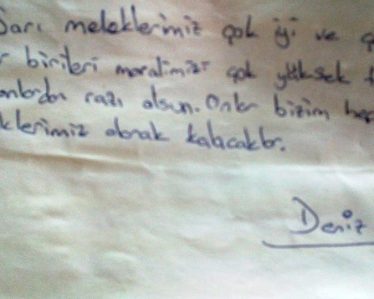 Sarı meleklerimiz çok iyi ve
birileri moralimizi çok yüksek
razı olsun. Onlar bizim hep
olarak kalacaklar.
Deniz